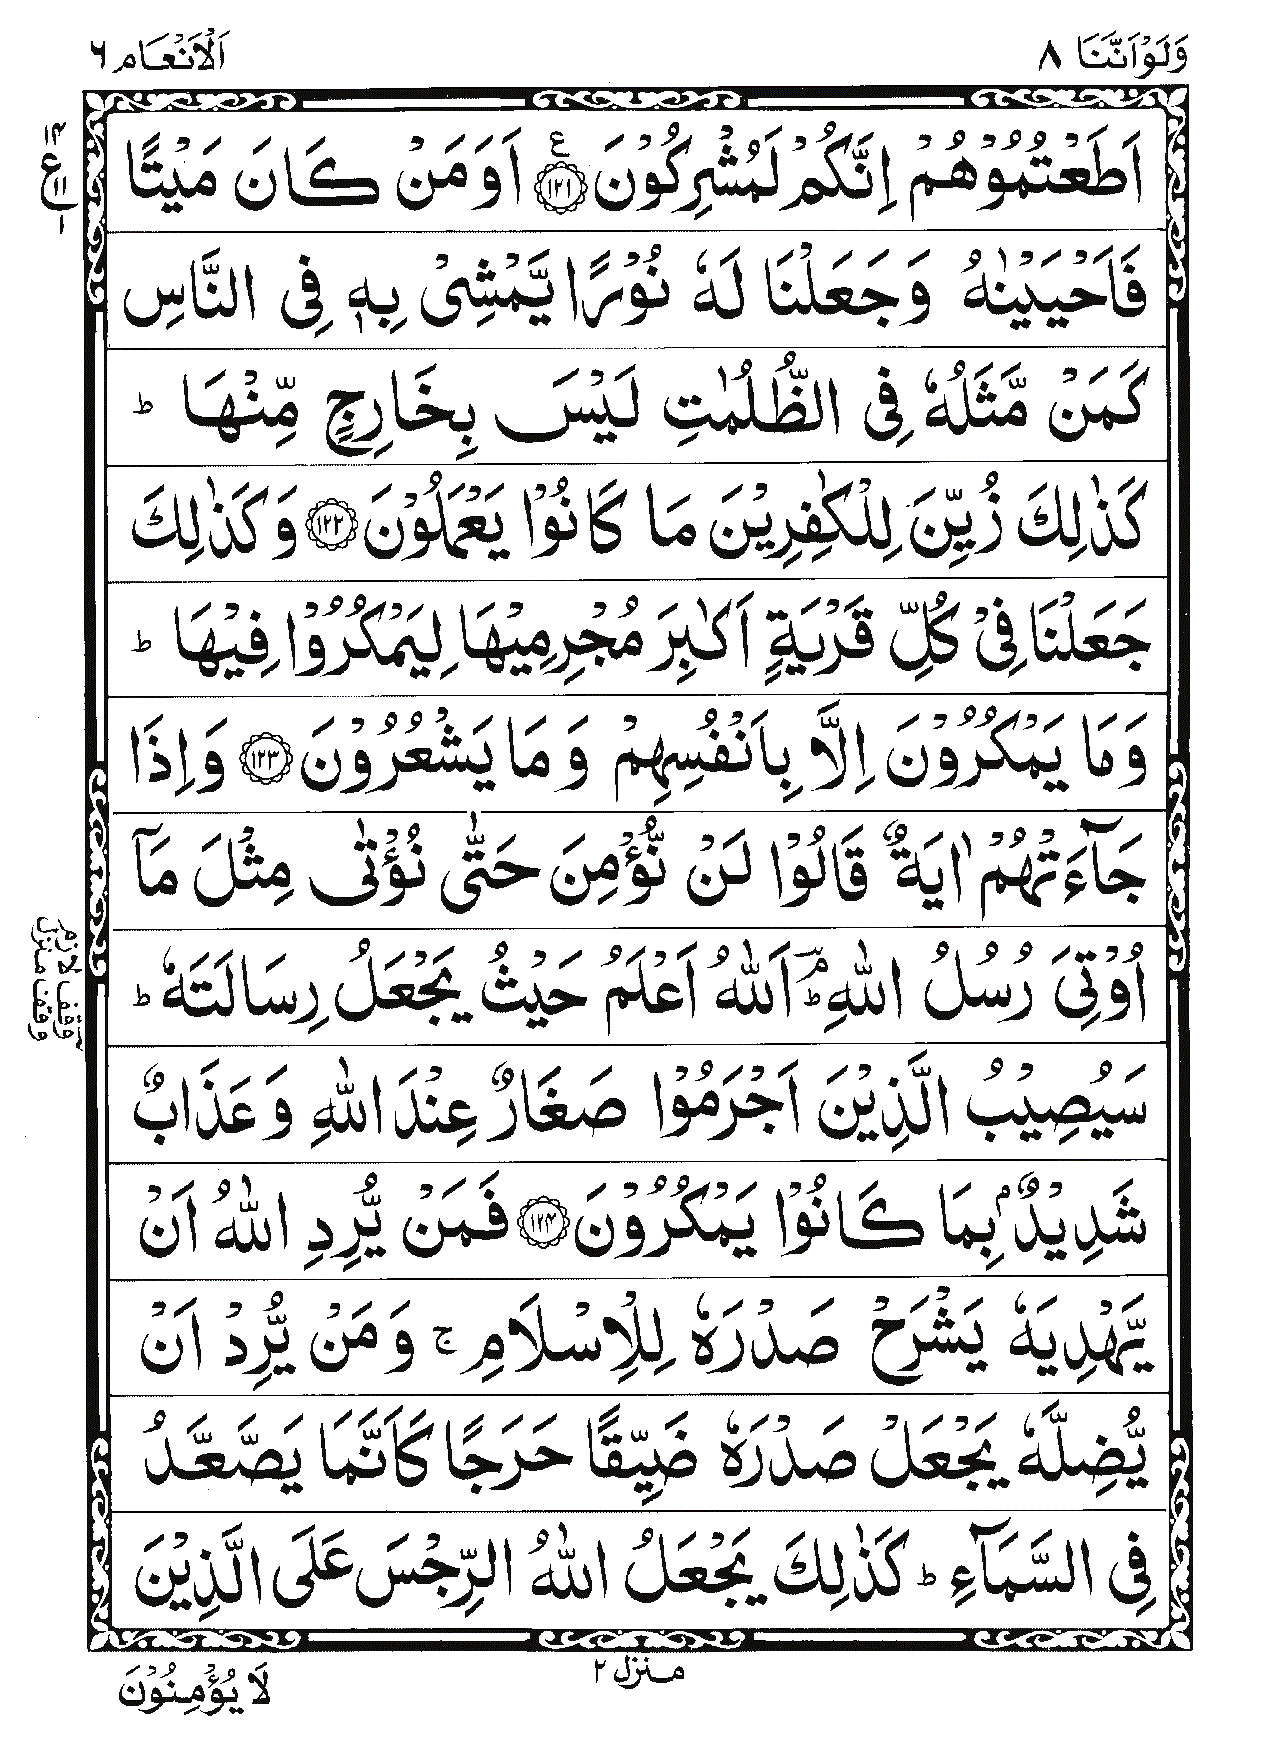 وَلَوْاَنَّنَا ٨
اَلْاَنْعَام ٦
اَطَعْتُمُوْهُمْ اِنَّكُمْ لَمُشْرِكُوْنَ ﴿۱۲۱﴾ ع اَوَمَنْ كَانَ مَيْتًا
فَاَحْيَيْنٰهُ وَجَعَلْنَا لَهٗ نُوْرًا يَّمْشِىْ بِهٖ فِى النَّاسِ
كَمَنْ مَّثَلُهٗ فِى الظُّلُمٰتِ لَيْسَ بِخَارِجٍ مِّنْهَا ؕ
كَذٰلِكَ زُيِّنَ لِلْكٰفِرِيْنَ مَا كَانُوْا يَعْمَلُوْنَ ﴿۱۲۲﴾ وَكَذٰلِكَ
جَعَلْنَا فِىْ كُلِّ قَرْيَةٍ اَكٰبِرَ مُجْرِمِيْهَا لِيَمْكُرُوْا فِيْهَا ؕ
وَمَا يَمْكُرُوْنَ اِلَّا بِاَنْفُسِهِمْ وَمَا يَشْعُرُوْنَ ﴿۱۲۳﴾ وَاِذَا
جَآءَتْهُمْ اٰيَةٌ قَالُوْا لَنْ نُّؤْمِنَ حَتّٰى نُؤْتٰى مِثْلَ مَآ
اُوْتِىَ رُسُلُ اللّٰهِ ؔۘؕ اَللّٰهُ اَعْلَمُ حَيْثُ يَجْعَلُ رِسَالَتَهٗ ؕ
سَيُصِيْبُ الَّذِيْنَ اَجْرَمُوْا صَغَارٌ عِنْدَ اللّٰهِ وَعَذَابٌ
شَدِيْدٌۢ بِمَا كَانُوْا يَمْكُرُوْنَ ﴿۱۲۴﴾ فَمَنْ يُّرِدِ اللّٰهُ اَنْ
يَّهْدِيَهٗ يَشْرَحْ صَدْرَهٗ لِلْاِسْلَامِ ۚ وَمَنْ يُّرِدْ اَنْ
يُّضِلَّهٗ يَجْعَلْ صَدْرَهٗ ضَيِّقًا حَرَجًا كَاَنَّمَا يَصَّعَّدُ
فِى السَّمَآءِ ؕ كَذٰلِكَ يَجْعَلُ اللّٰهُ الرِّجْسَ عَلَى الَّذِيْنَ
لَا يُؤْمِنُوْنَ
منزل ۲
۱۴
ع
۱۱
۱
وقف لازم
وقف منزل